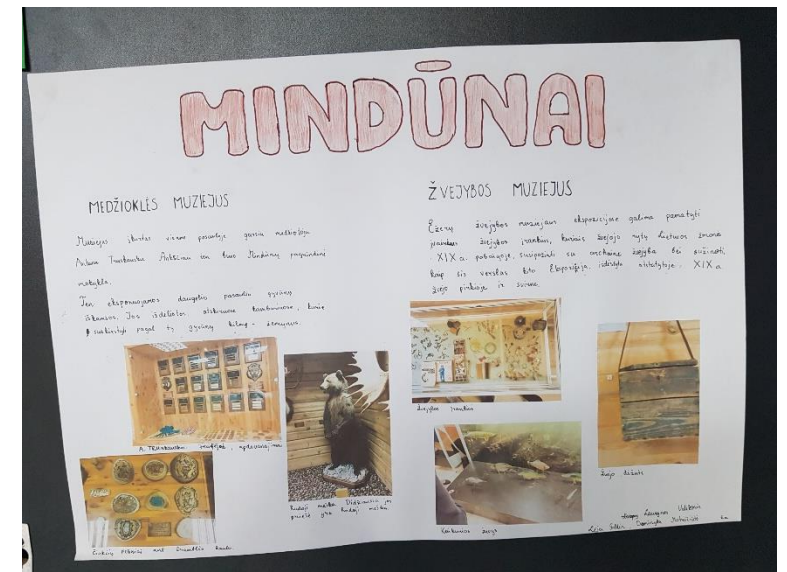 MINDŪNAI
MEDŽIOKLĖS MUZIEJUS
Muziejus įkurtas vieno pasaulyje garsių medžiotojo
Antano Truskausko Anksčiau ten buvo Mindūnų pagrindinė
mokykla.
Ten eksponuojamos daugelio pasaulio gyvūnų
iškamšos. Jos išdėliotos atskiruose kambariuose, kurie
suskirstyti pagal tų gyvūnų kilmę - žemynus.
A. Truskausko medžioklės apdovanojimai
Rudoji meška
gyva Rudoji meška.
ŽVEJYBOS MUZIEJUS
Ežerų žvejybos muziejaus ekspozicijoje galima pamatyti
įvairius žvejybos įrankius, kuriais žvejojo rytų Lietuvos žmonės
XIX a. pabaigoje, susipažinti su ankstine žvejyba bei sužinoti,
kaip šis verslas kito Ekspozicija išdėstyta atstatytoje XIX a.
žvejo pirkioje ir svirne.
žvejybos įrankiai
žvejo dėžutė